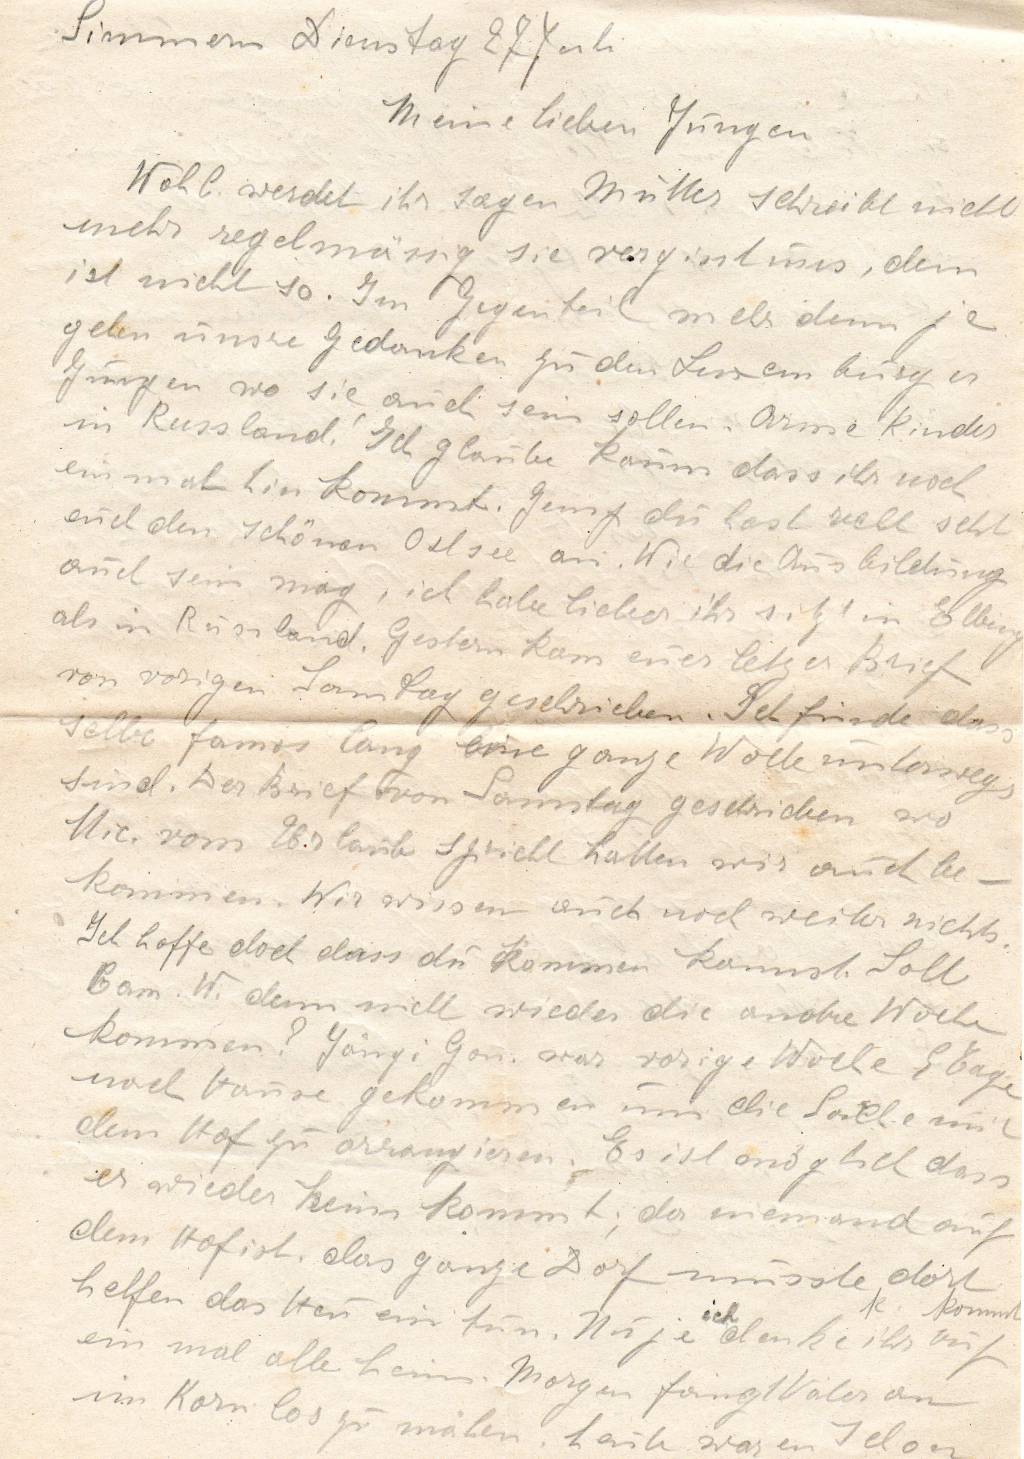 Simmern Dienstag 27 Juli
Meine lieben Jungen
Wohl werdet ihr sagen Mutter schreibt nicht
mehr regelmässig sie vergisst uns, dem
ist nicht so. Im Gegenteil mehr denn je
gehen unsre Gedanken zu den Luxemburger
Jungen wo sie auch sein sollen. Arme Kinder
in Russland! Ich glaube kaum dass ihr noch
einmal hin kommt. Jemp du hast
auch den schönen Ostsee an. Wie die Ausbildung
auch sein mag, ich habe lieber ihr sitzt in Elbing
als in Russland. Gestern kam euer letzer Brief
von vorigen Samstag geschrieben. Ich finde dass
selbe famos lang eine ganze Woche unterwegs
sind. Der Brief von Samstag geschrieben wo
Nic. vom Urlaub spricht hatten wir auch be-
kommen. Wir wissen auch noch weiter nichts.
Ich hoffe doch dass du kommen kannst. Soll
Cam. W. denn nicht wieder die andre Woche
kommen? Jängi Gon. war vorige Woche Tage
nach Hause gekommen um die Sache mit
dem Hof zu arrangieren. Es ist möglich dass
er wieder heim kommt, da niemand auf
dem Hof ist. das ganze Dorf musste dort
helfen das Heu ein tun. Nu je ich denke ihr kommt auf
ein mal alle heim. Morgen fängt Vater an
im Korn los zu mähen. heute waren schon